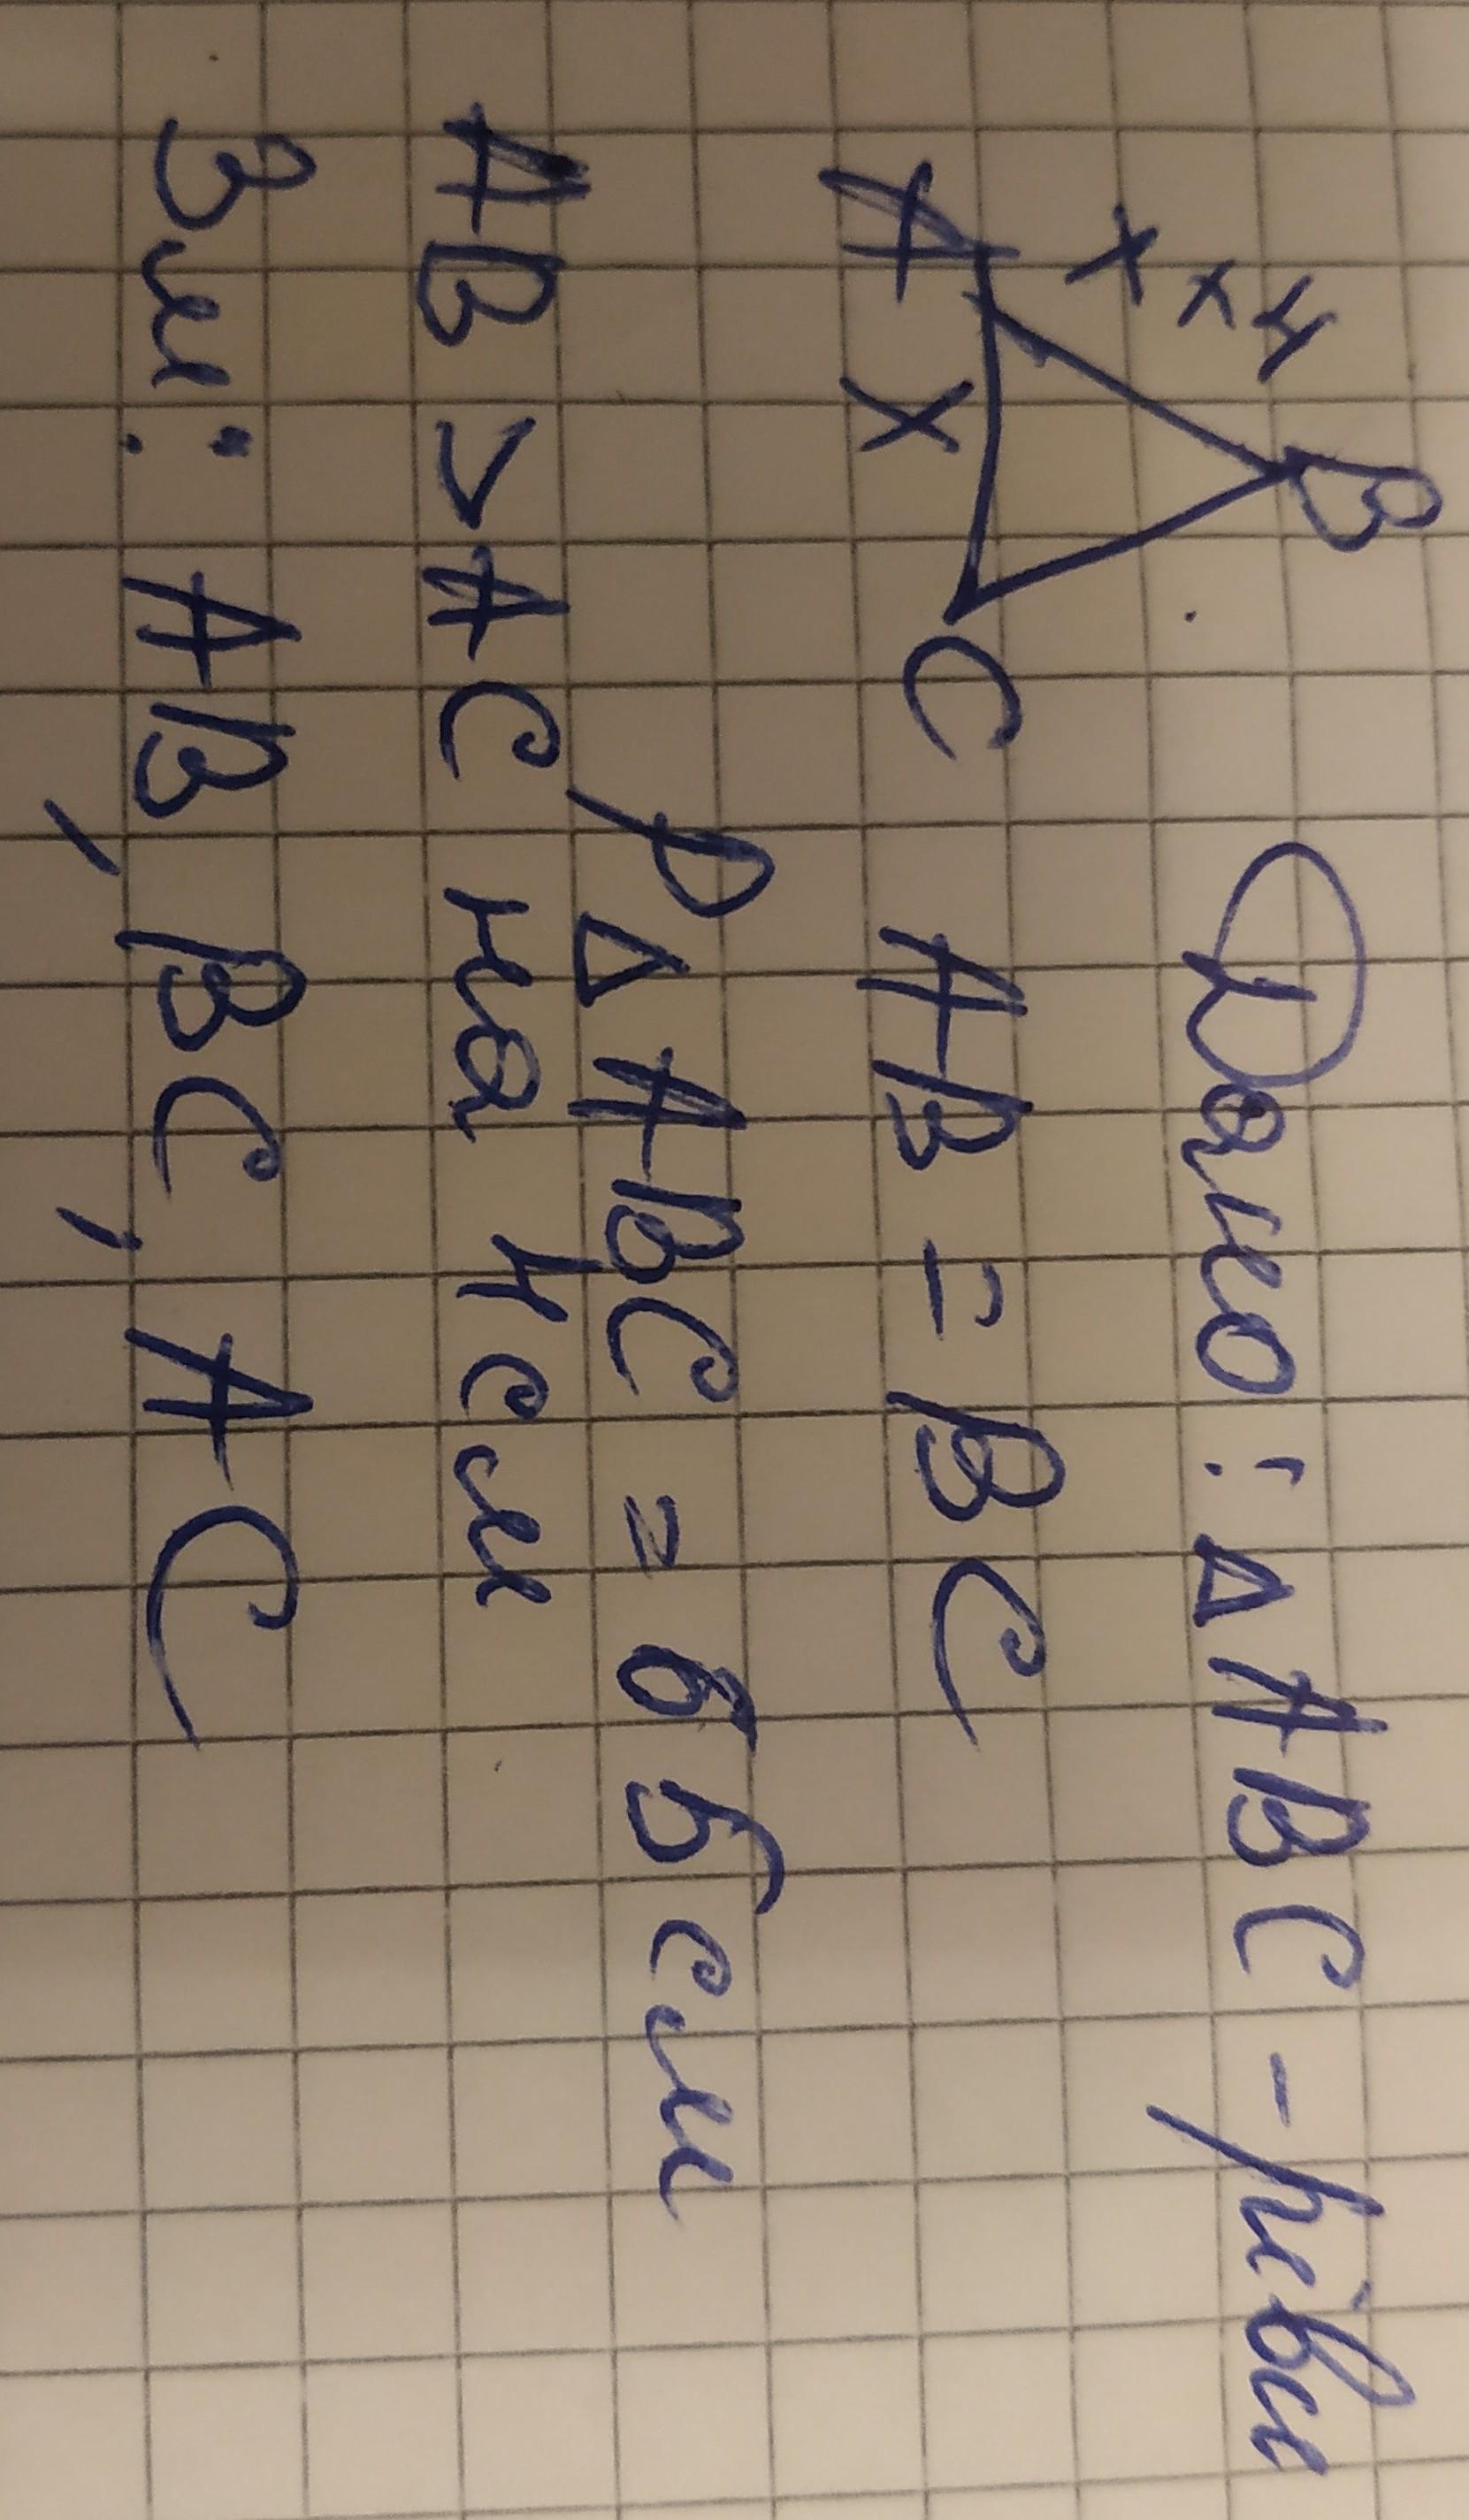 B
x+4
A x C
Дано: △ABC - рівн
AB = BC
P△ABC = 65 см
AB > AC на 4 см
Зн: AB, BC, AC